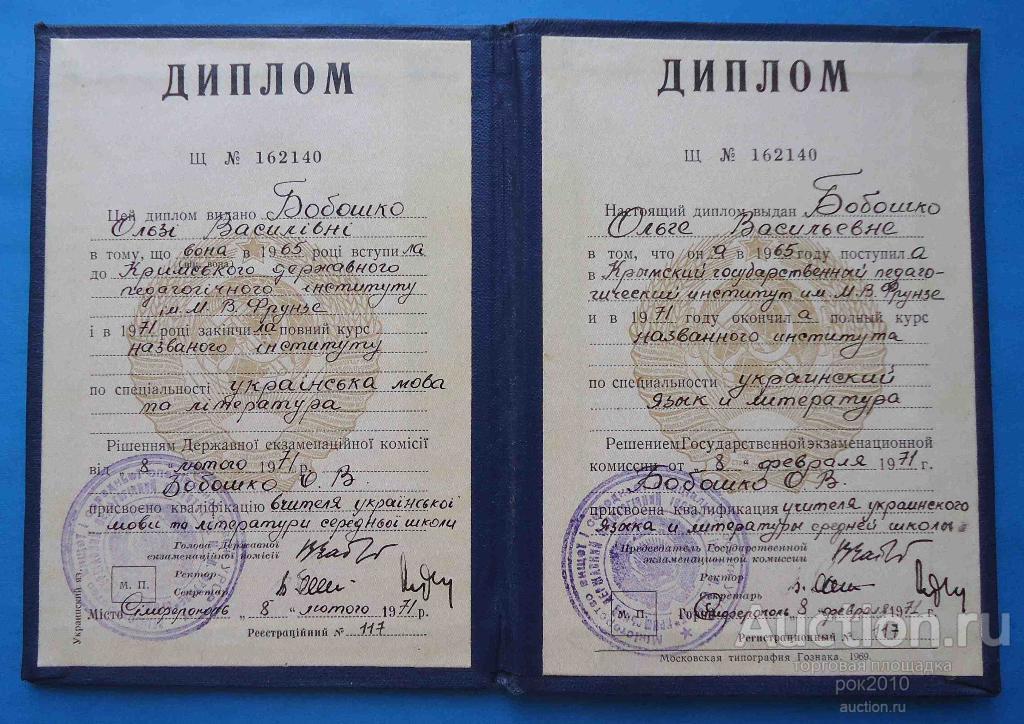 ДИПЛОМ
Щ № 162140
Цей диплом видано Бобошко
Ользі Василівні
в тому, що вона в 1965 році вступила
(він, вона)
до Кримського державного
педагогічного інституту
ім. М. В. Фрунзе
і в 1971 році закінчила повний курс
названого інституту
по спеціальності українська мова
та література
Рішенням Державної екзаменаційної комісії
від 8 „ лютого 1971 р.
Бобошко О. В.
присвоєно кваліфікацію вчителя української
мови та літератури середньої школи
Голова Державної
екзаменаційної комісії
Ректор
Секретар
М. П.
Місто Сімферополь „ 8 „ лютого 1971 р.
Реєстраційний № 117
Украинский яз.
ДИПЛОМ
Щ № 162140
Настоящий диплом выдан Бобошко
Ольге Васильевне
в том, что он а в 1965 году поступила
в Крымский государственный педаго-
гический институт им. М. В. Фрунзе
и в 1971 году окончила полный курс
названного института
по специальности украинский
язык и литература
Решением Государственной экзаменационной
комиссии от „ 8 „ февраля 1971 г.
Бобошко О. В.
присвоена квалификация учителя украинского
языка и литературы средней школы
Председатель Государственной
экзаменационной комиссии
Ректор
Секретарь
М. П.
Город Симферополь 8 „ февраля 1971 г.
Регистрационный № 117
Московская типография Гознака. 1969.
Auction.ru
торговая площадка
рок2010
auction.ru